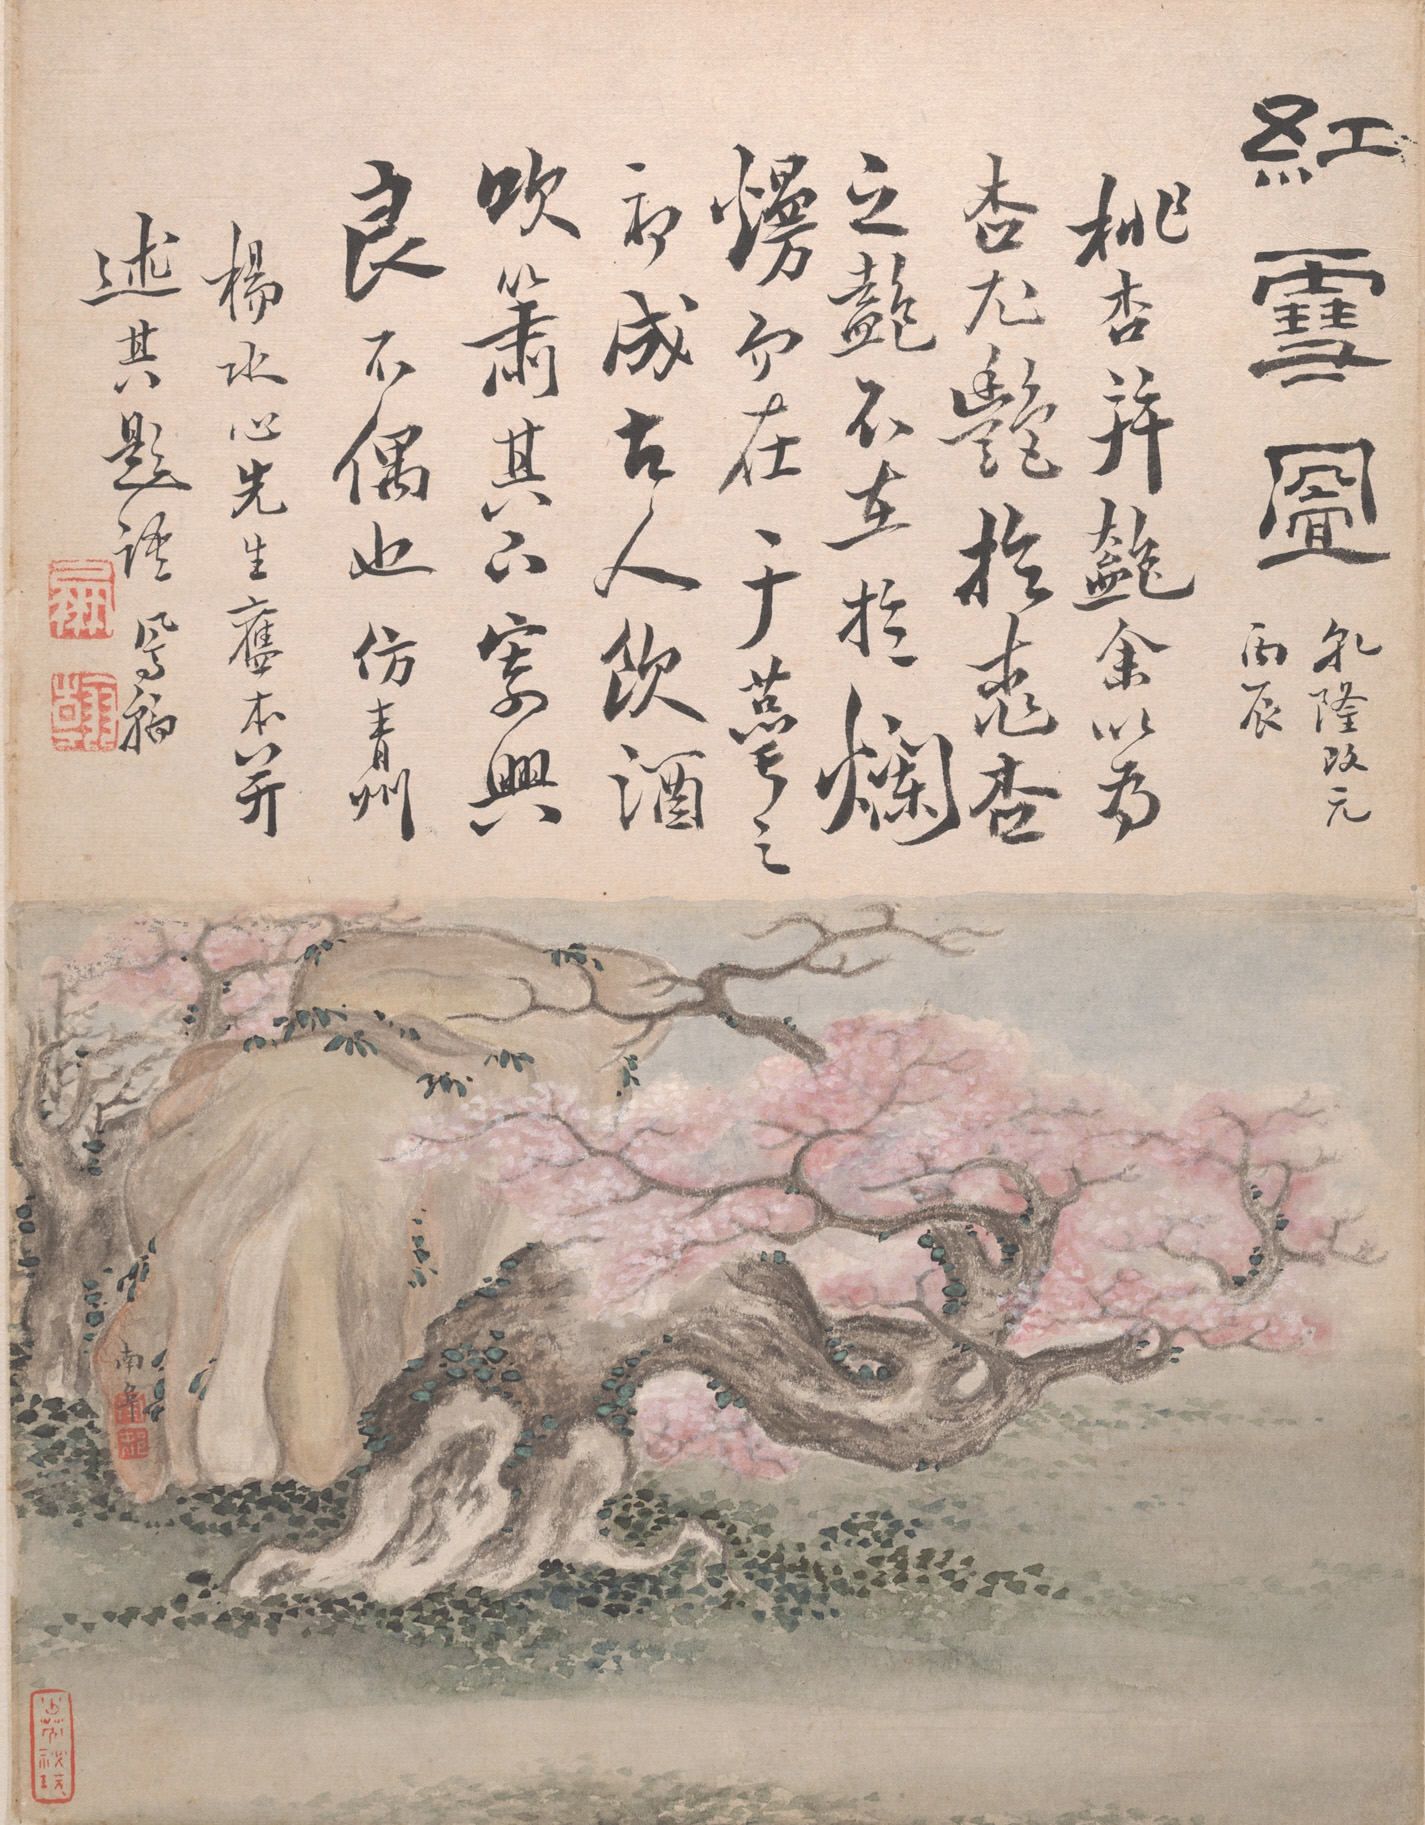 紅雪圖
乾隆改元
丙辰
桃杏并艷余以為
杏尤艷於桃杏
之艷不在於爛
熳而在于苞萼之
初成古人飲酒
吹簫其下寄興
良不偶也仿青州
楊水心先生舊本并
述其題語 鳳翰
南阜